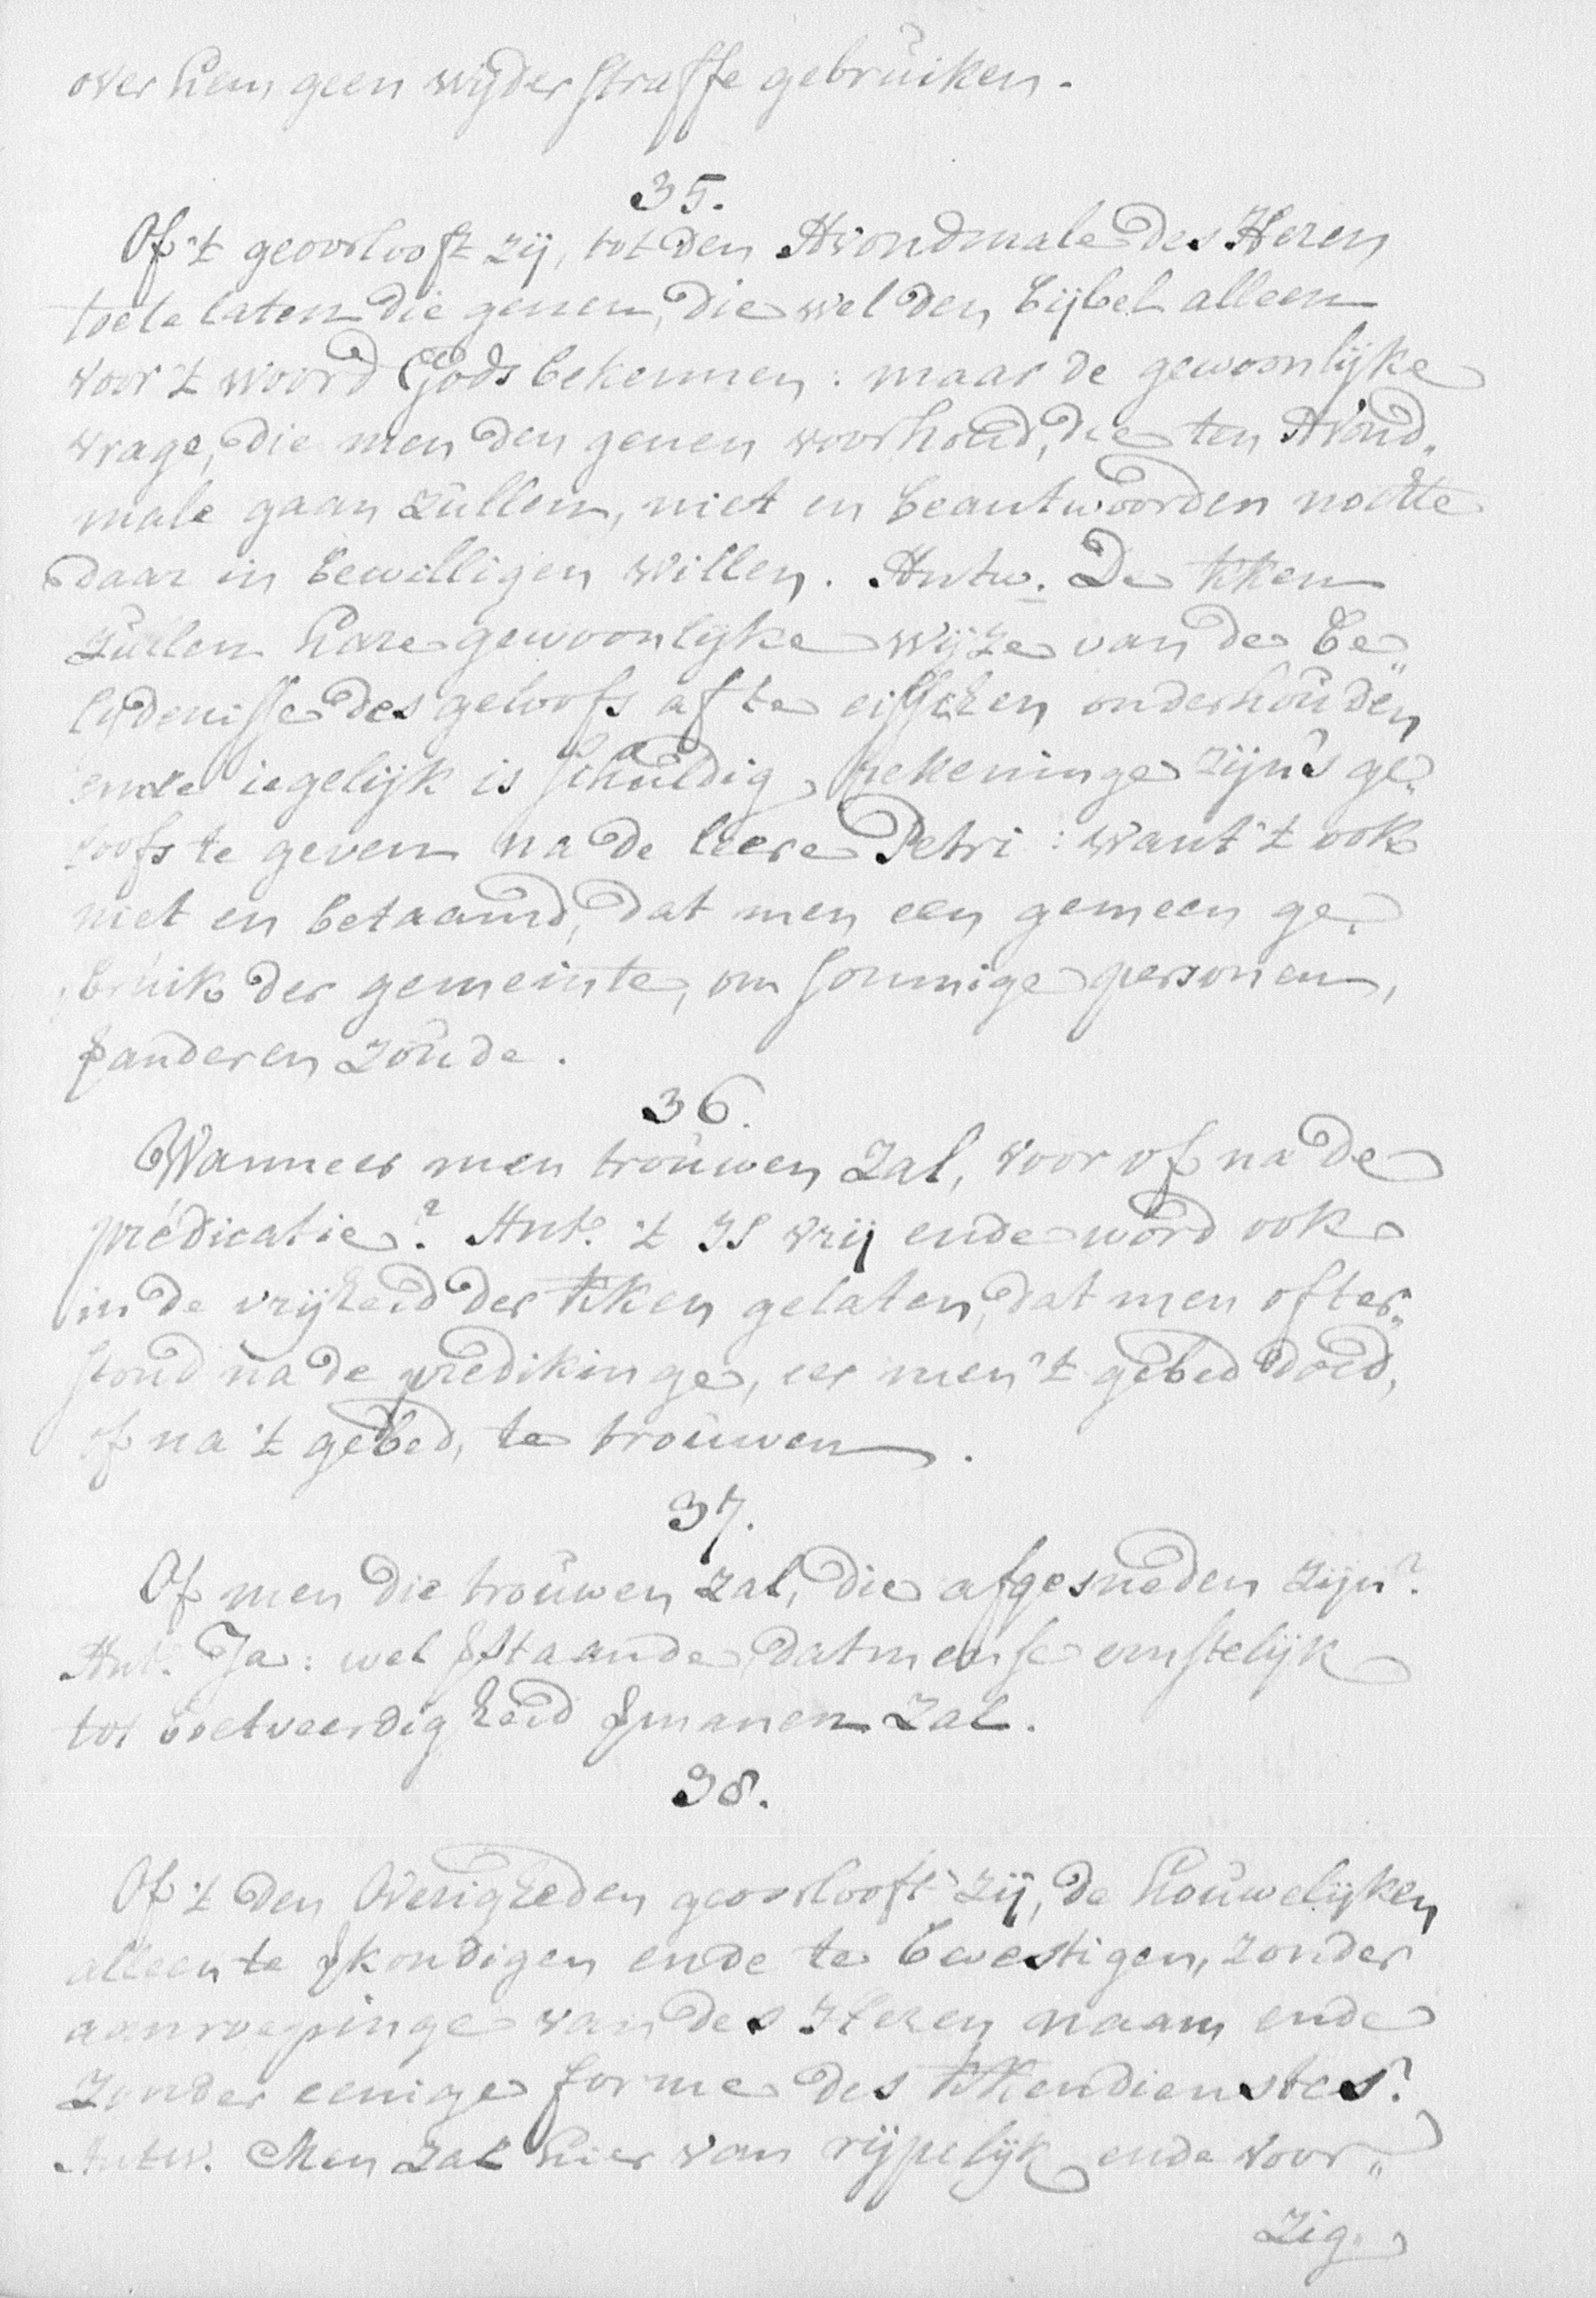 over hem geen wijder straffe gebruiken.
35.
Of 't geoorlooft zij, tot den Avondmale des Heren
toe te laten die genen, die wel den bijbel alleen
voor 't woord Gods bekennen: maar de gewoonlijke
vrage, die men den genen voorhoud, die ten Avond„
male gaan zullen, niet en beantwoorden nochte
daar in bewilligen willen. Antw. De kken
zullen hare gewoonlijke wijze van de be„
lijdenisse des geloofs af te eisschen onderhouden,
ende iegelijk is schuldig, rekeninge zijn's ge„
loofs te geven na de leere Petri: want 't ook
niet en betaamd, dat men een gemeen ge„
bruik der gemeinte, om sommige personen,
ꝟanderen zoude.
36.
Wanneer men trouwen zal, voor of na de
prédicatie? Ant. 't Is vrij ende word ook
in de vrijheid der kken gelaten, dat men of ter„
stond na de predikinge, eer men 't gebed doed,
of na 't gebed, te trouwen.
37.
Of men die trouwen zal, die afgesneden zijn?
Ant. Ja: wel ꝟstaande dat men se ernstelijk
tot boetveerdigheid ꝟmanen zal.
38.
Of 't den Overigheden geoorlooft zij, de houwelijken
alleen te ꝟkondigen ende te bevestigen, zonder
aanroepinge van des Heren naam ende
zonder eenige forme des kkendienstes?
Antw. Men zal hier van rijpelijk ende voor„
zig„